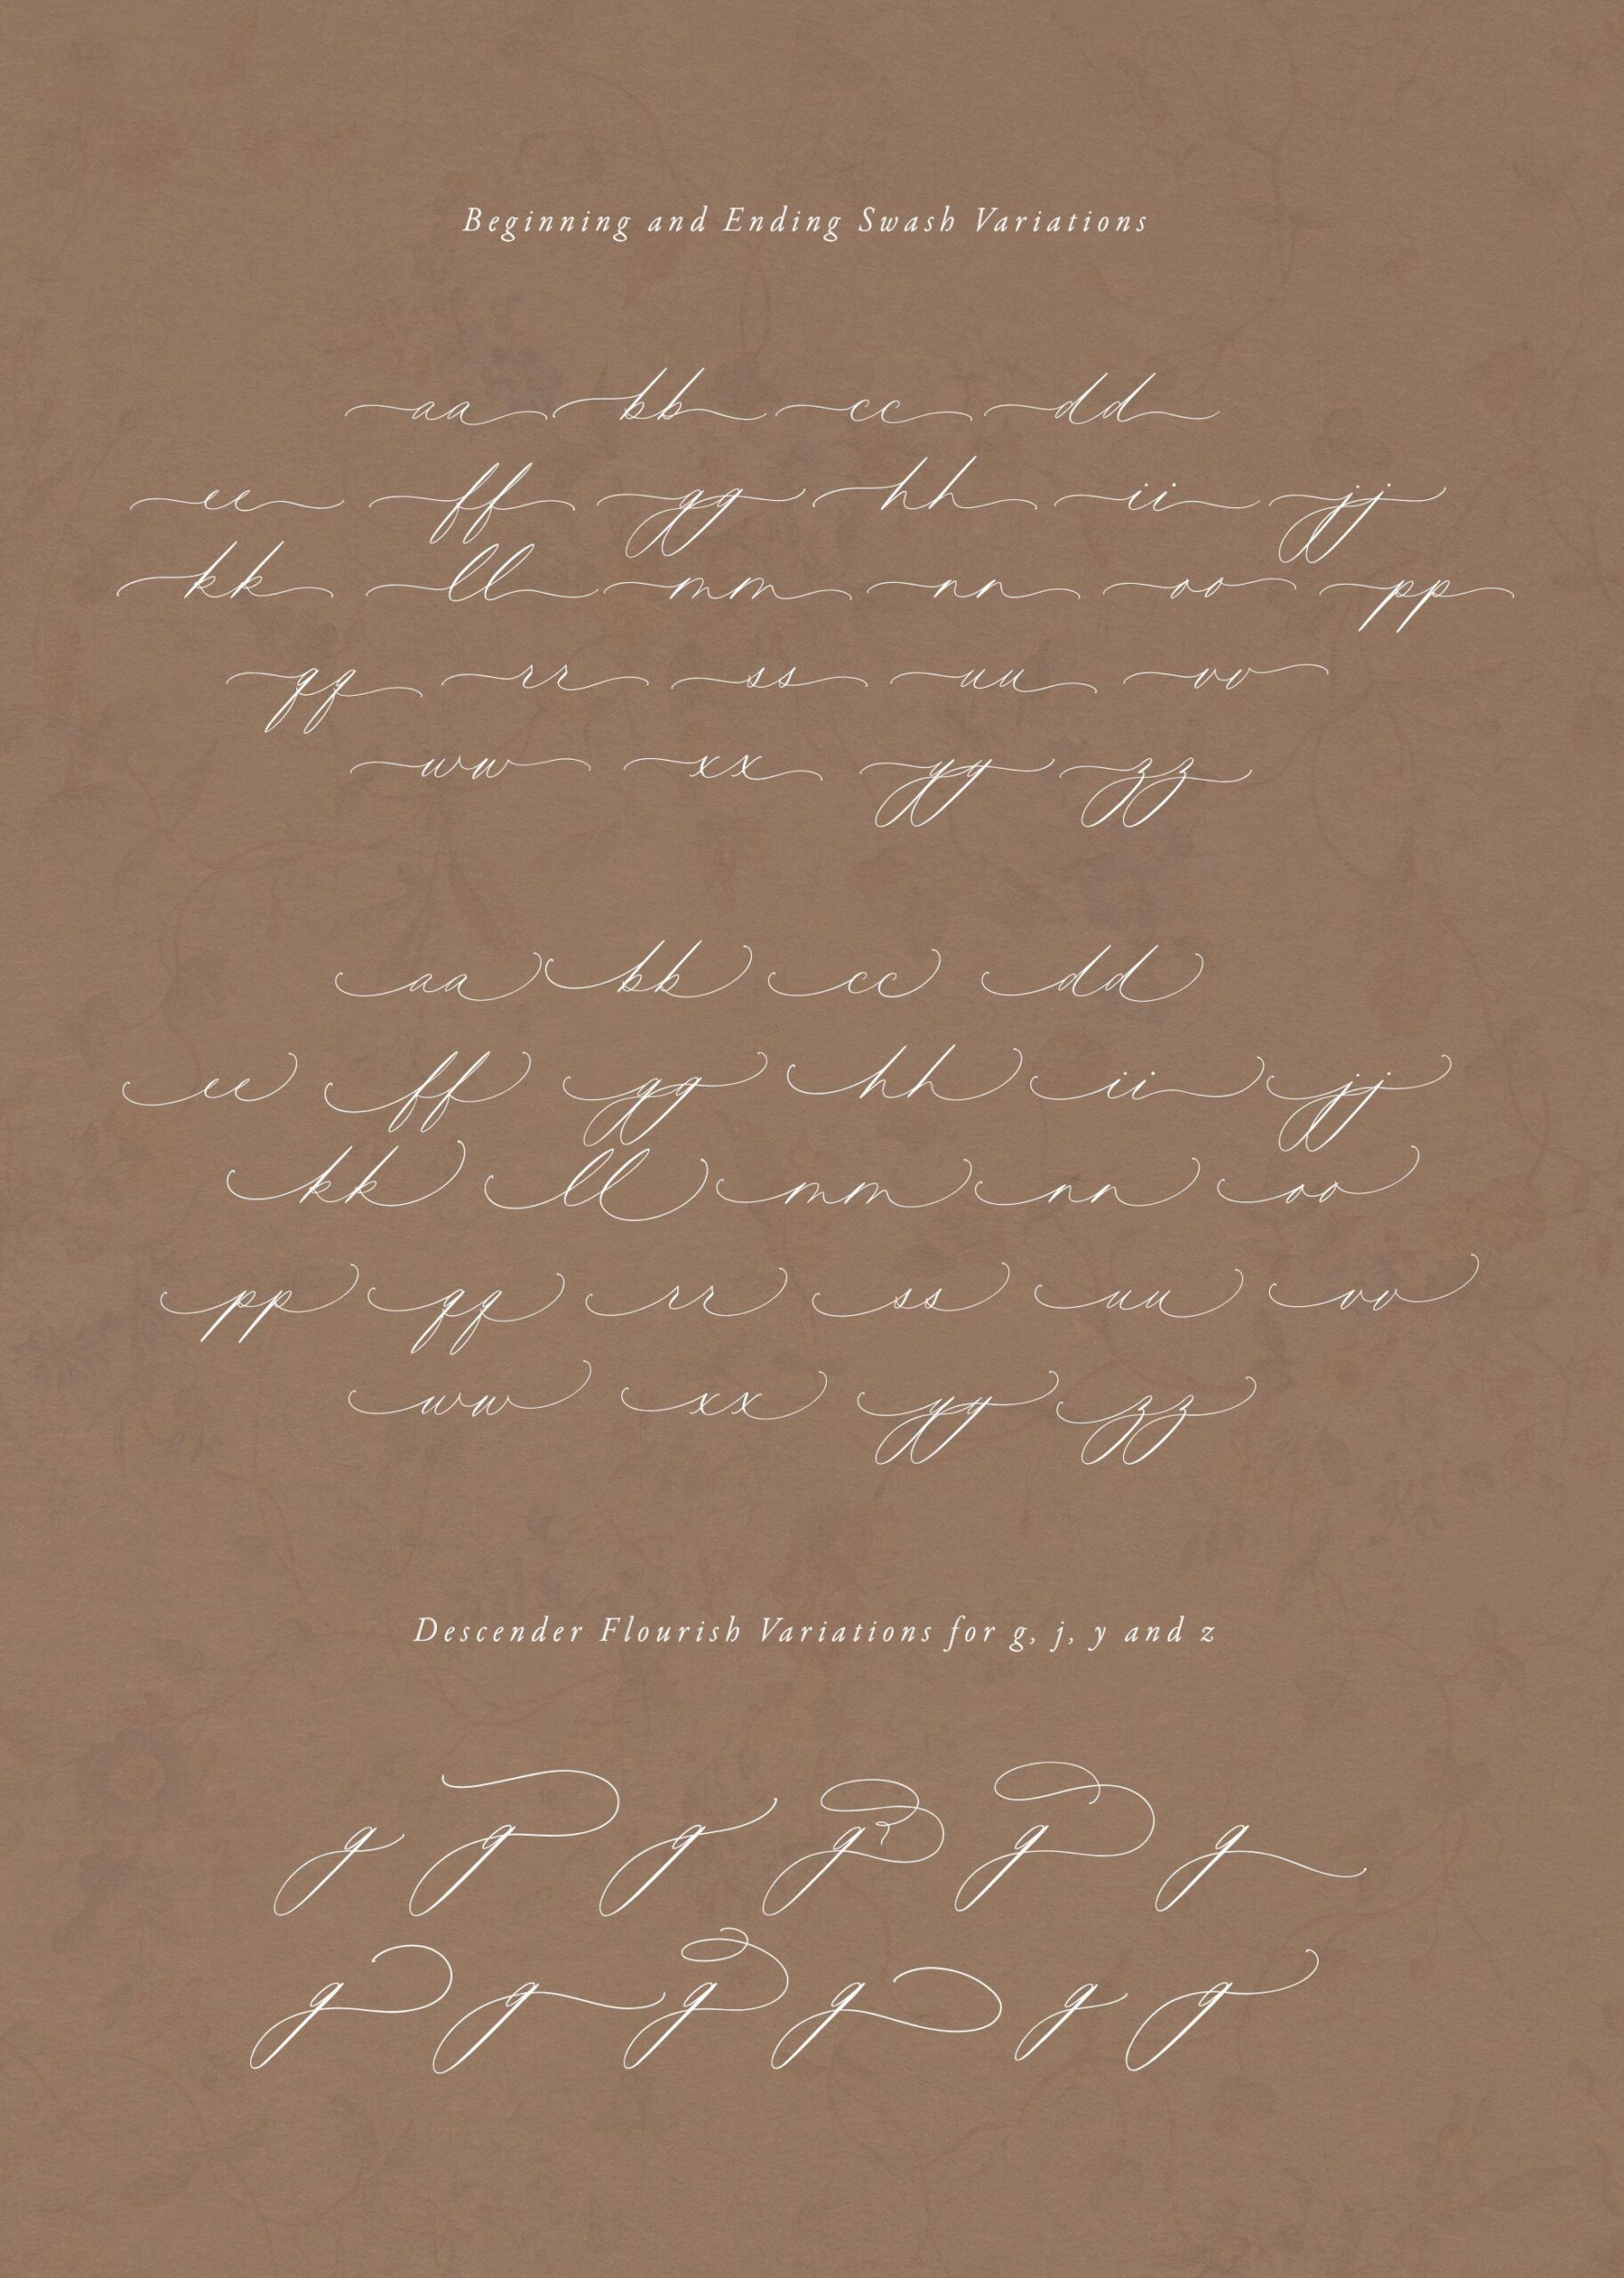 Beginning and Ending Swash Variations
aa bb cc dd
ee ff gg hh ii jj
kk ll mm nn oo pp
qq rr ss uu vv
ww xx yy zz
aa bb cc dd
ee ff gg hh ii jj
kk ll mm nn oo
pp qq rr ss uu vv
ww xx yy zz
Descender Flourish Variations for g, j, y and z
g g g g g g
g g g g g g